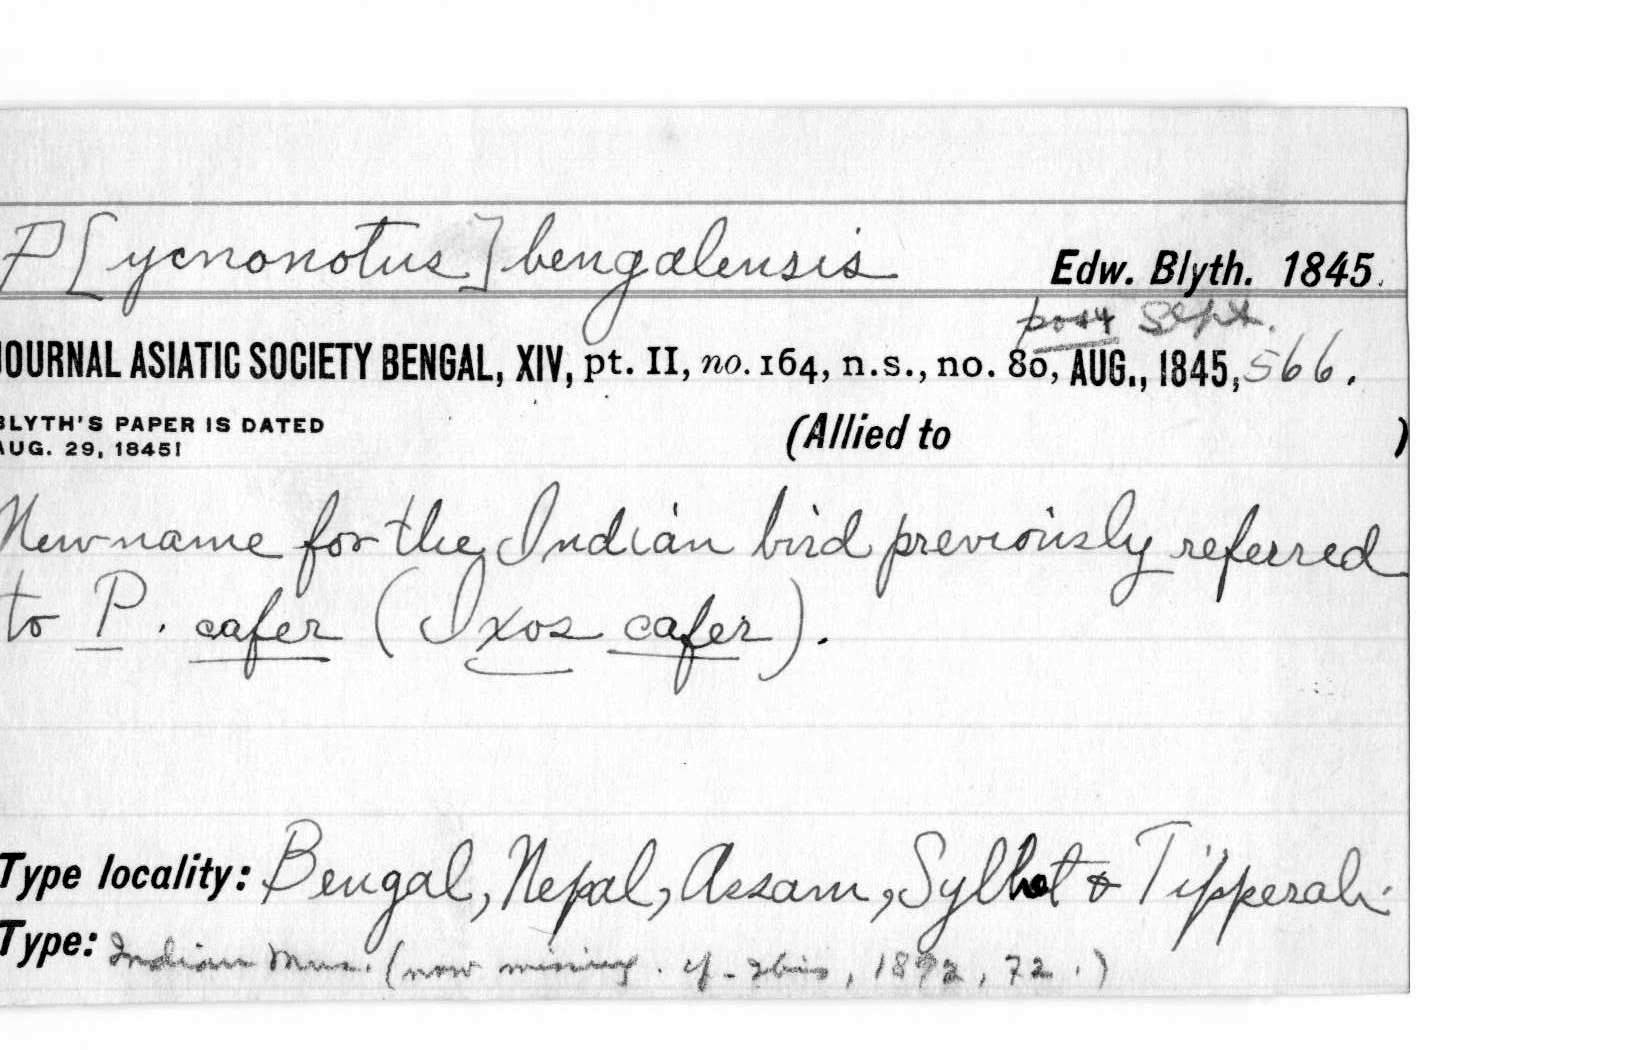 P[ycnonotus] bengalensis Edw. Blyth. 1845.
post Sept.
JOURNAL ASIATIC SOCIETY BENGAL, XIV, pt. II, no. 164, n.s., no. 80, AUG., 1845, 566.
BLYTH'S PAPER IS DATED (Allied to )
AUG. 29, 1845!
New name for the Indian bird previously referred
to P. cafer (Ixos cafer).
Type locality: Bengal, Nepal, Assam, Sylhet & Tipperah.
Type: Indian Mus. (now missing. cf. Ibis, 1872, 72.)